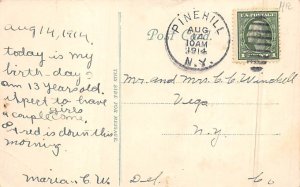 Aug 14, 1914.
today is my
birth-day I
am 13 years old.
expect to have
a couple girls
come.
Fred is down this
morning.
Marian C.
Post
PINEHILL
AUG
10AM
1914
N.Y.
U.S. POSTAGE
Mr. and Mrs. C. C. Winchell
Vega
N.Y.
Del. Co